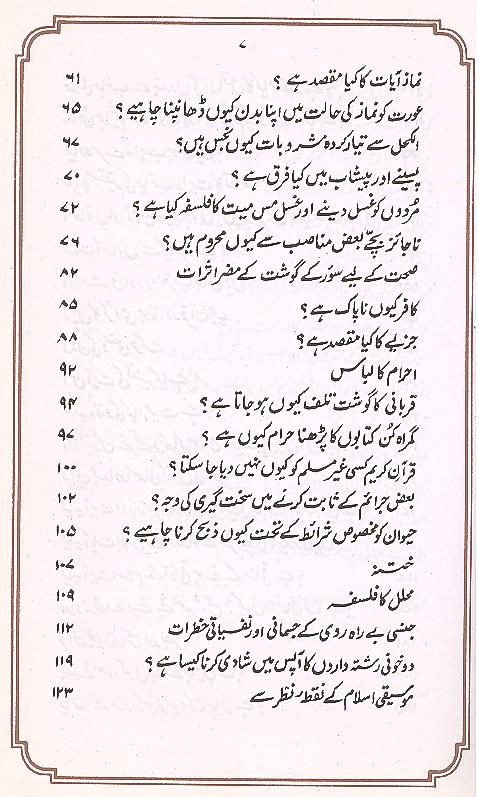 ۷
نماز آیات کا کیا مقصد ہے ؟ ۶۱
عورت کو نماز کی حالت میں اپنا بدن کیوں ڈھانپنا چاہیے ؟ ۶۵
الکحل سے تیار کردہ مشروبات کیوں نجس ہیں؟ ۶۷
پسینے اور پیشاب میں کیا فرق ہے ؟ ۷۰
مُردوں کو غسل دینے اور غسل مس میت کا فلسفہ کیا ہے ؟ ۷۲
ناجائز بچّے بعض مناصب سے کیوں محروم ہیں؟ ۷۶
صحت کے لیے سؤر کے گوشت کے مضر اثرات ۸۲
کافر کیوں ناپاک ہے ؟ ۸۵
جزیے کا کیا مقصد ہے ؟ ۸۸
احرام کا لباس ۹۲
قربانی کا گوشت تلف کیوں ہو جاتا ہے ؟ ۹۴
گمراہ کُن کتابوں کا پڑھنا حرام کیوں ہے ؟ ۹۷
قرآن کریم کسی غیر مسلم کو کیوں نہیں دیا جا سکتا؟ ۱۰۰
بعض جرائم کے ثابت کرنے میں سخت گیری کی وجہ ؟ ۱۰۲
حیوان کو مخصوص شرائط کے تحت کیوں ذبح کرنا چاہیے ؟ ۱۰۵
ختنہ ۱۰۷
محلل کا فلسفہ ۱۰۹
جنسی بے راہ روی کے جسمانی اور نفسیاتی خطرات ۱۱۲
دو خونی رشتہ داروں کا آپس میں شادی کرنا کیسا ہے ؟ ۱۱۹
موسیقی اسلام کے نقطۂ نظر سے ۱۲۳